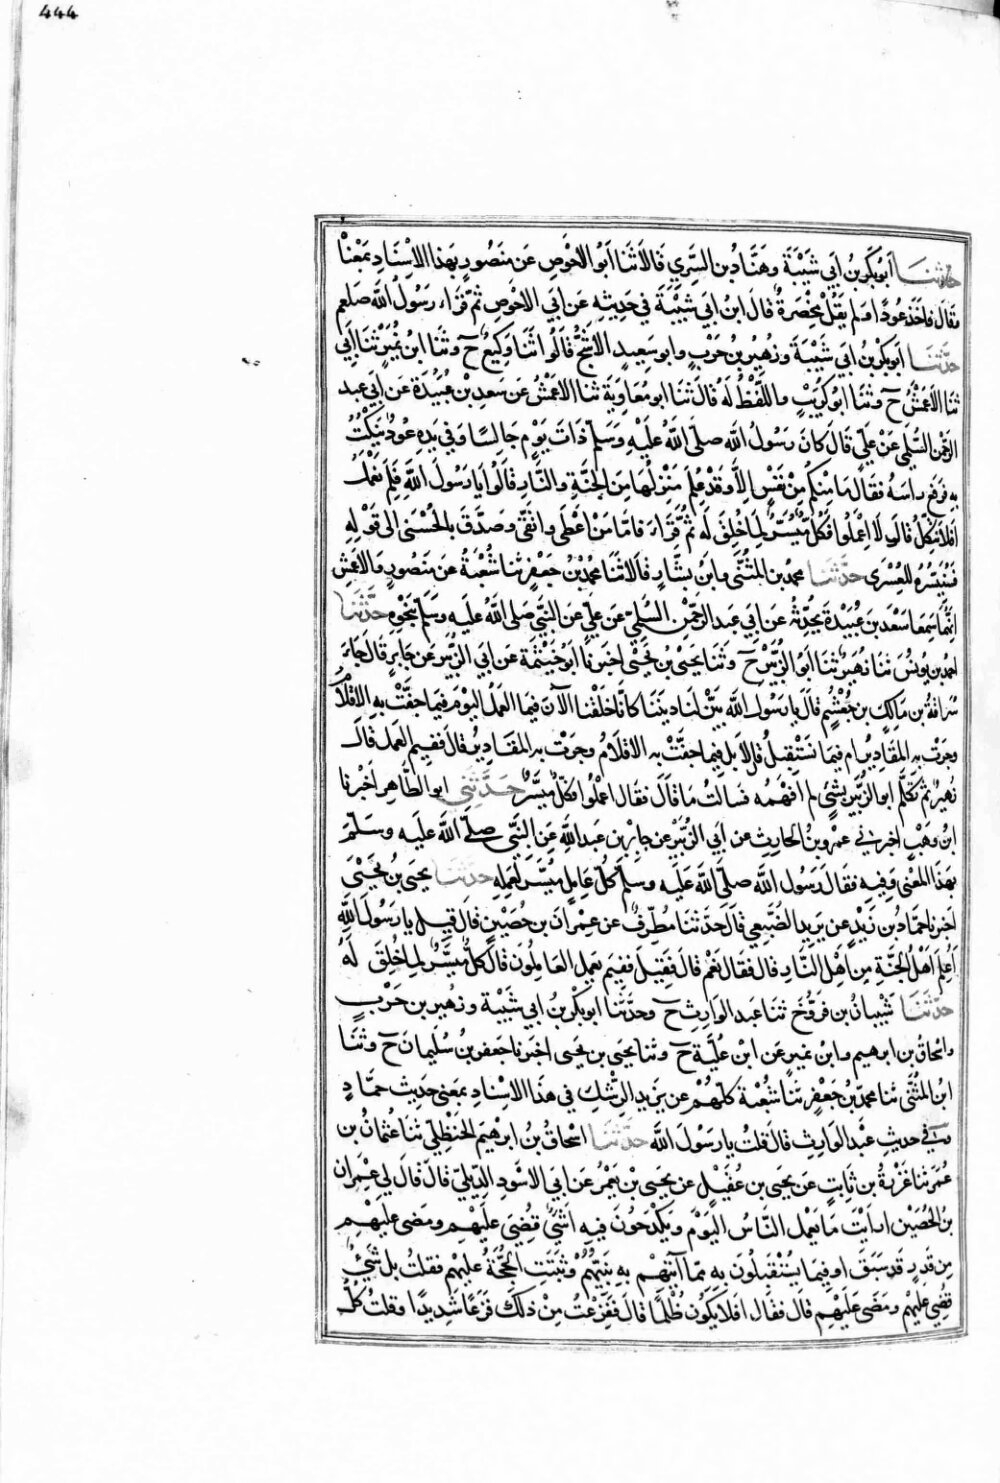 444
حدثنا أَبُو بَكْرِ بْنُ أَبِي شَيْبَةَ وهَنَّادُ بن السَّرِيِّ قَالَا ثَنَا أَبُو الأَحْوَصِ عَن مَنصُورٍ بِهَذا الاِسْنَادِ بِمَعْنَاه
وقَالَ فَأَخَذَ عُودًا وَلَم يَقُلْ مِخْصَرَةً قَالَ ابنُ ابي شيبَةَ في حَدِيثِه عَن أَبي الاحْوصِ ثمَّ قَرَأَ رَسُولُ اللَّه صَلعم
حدَّثَنَا أَبُو بَكْرِ بن أبي شَيْبَةَ وزُهَيْرُ بنُ حَرْبٍ وابو سَعِيدٍ الاشَجُّ قَالُوا ثَنَا وَكِيعٌ ح وثَنَا ابن نُمَيْرٍ ثَنَا أَبي
ثنا الاعْمَشُ ح وثَنَا ابُو كُرَيْبٍ واللَّفْظُ لَهُ قَالَ ثَنَا ابو مُعَاوِيَةَ ثنا الاعْمَشُ عَن سَعدِ بْنِ عُبَيْدَةَ عَن أَبي عبد
الرَّحْمنِ السُّلَمِي عَنْ عَلِيٍّ قَالَ كَانَ رَسُولُ اللَّه صلَّى اللَّهُ عَلَيْهِ وَسَلَّم ذَاتَ يَوْمٍ جَالِسًا وَفي يَدِهِ عُودٌ يَنْكُتُ
بِهِ فرَفَعَ رَاسَهُ فَقَالَ مَا مِنكُم مِنْ نَفْسٍ إِلاَّ وقَدْ عُلِمَ مَنْزِلُهَا مِنَ الجَنَّةِ والنَّارِ قَالُوا يا رَسُولَ اللَّه فَلِمَ نَعْمَلُ
أَفَلَا نَتَّكِلُ قَالَ لَا اعْمَلُوا فَكُلٌّ مُيَسَّرٌ لِمَا خُلِقَ لَه ثُمَّ قَرَأَ فَامَّا مَنْ اَعْطَى وَاتَّقَى وصَدَّقَ بالحُسْنَى الى قَوْلِهِ
فَسَنُيَسِّرُهُ لِلعُسْرَى حدَّثنَا محمدُ بن المثُنَّى وابنُ بَشَّارٍ قَالَا ثَنَا محمدُ بْنُ جَعْفَرٍ ثَنا شُعْبَةُ عَن مَنصُورٍ والاعمَشِ
انَّهُمَا سَمِعَا سَعْدَ بنَ عُبَيْدَةَ يُحدِّثُهُ عَن اَبي عَبد الرحمن السُّلَمِيِّ عَن عَلِيٍّ عَنِ النَّبِيِّ صَلى اللَّهُ عَلَيهِ وسَلَّم بِنَحْوِهِ حَدَّثَنَا
احمد بن يُونُس ثَنَا زُهَيْرٌ ثَنا اَبُو الزُّبَيْرِ ح وثَنَا يَحيَى بْنُ يَحْيَى اخبَرَنا اَبو خَيْثَمَةَ عَن اَبي الزُّبَيرِ عَن جَابِرٍ قَالَ جَاءَ
سُرَاقَةُ بن مَالِكِ بنِ جُعْشُمٍ قَالَ يا رَسُولَ اللَّهِ بَيِّنْ لَنَا دِينَنَا كَاَنَّا خُلِقْنَا الآنَ فِيمَا العَمَلُ اليَوْمَ فيما جَفَّتْ بِهِ الاَقْلَامُ
وجَرَتْ بِه المَقَادِيرُ ام فيمَا نَسْتَقبِلُ قَالَ لا بَل فِيما جَفَّتْ بِه الاقْلَامُ وجَرَتْ بِه المَقَادِيرُ قَالَ فَفِيمَ العَمَل قَالَ
زُهَيرٌ ثمَّ تَكَلَّمَ ابو الزُّبَيْرِ بِشَيْءٍ لم افْهَمْهُ فَسَالتُ ما قَالَ فَقال اعمَلُوا فَكُلٌّ مُيَسَّرٌ حَدَّثَنِي ابو الطَّاهِرِ اَخْبَرنا
ابنُ وَهْبٍ اخبَرني عمْرُو بنُ الحَارِثِ عن اَبي الزُّبَيْرِ عَن جَابِرِ بْنِ عَبدِ اللَّهِ عَنِ النَّبيِّ صلَّى اللَّهُ عَلَيهِ وسَلَّمَ
بِهَذا المعْنى وَفِيهِ فَقَالَ رَسُول اللَّه صلَّى اللَّه عَلَيهِ وسَلَّم كُلُّ عَامِلٍ مُيَسَّرٌ لِعَمَلِهِ حَدَّثنا يحيَى بْنُ يَحْيَى
اخبَرنا حمَّادُ بن زَيْدٍ عن يَزِيدَ الضُّبَعِي قَالَ حَدَّثَنَا مُطَرِّفٌ عن عِمْرَانَ بن حُصَيْنٍ قَالَ قِيلَ يا رَسُولَ اللَّهِ
اَعُلِمَ اَهْلُ الجَنَّةِ مِن اَهْلِ النَّارِ قال فَقال نَعَمْ قَالَ فَقِيلَ فَفِيمَ يَعمَلُ العَامِلُونَ قَالَ كُلٌّ مُيَسَّرٌ لِمَا خُلِقَ لَهُ
حدَّثَنَا شَيْبَانُ بن فَرُّوخَ ثنا عَبدُ الوَارِثِ ح وحَدَّثَنا ابو بَكْرِ بنُ ابي شَيْبَةَ وزُهَير بن حَرْبٍ
واسْحَاقُ بن ابرهيم وابنُ نُميرٍ عَن ابْنِ عُلَيَّةَ ح وثنا يَحيَى بن يَحيى اخبَرنا جَعفَرُ بن سُلَيمانَ ح وثَنَا
ابن المُثَنَّى ثنا محمدُ بنُ جَعْفَرٍ ثَنا شُعْبَةُ كلّهُمْ عَن يَزِيد الرِّشْكِ في هَذَا الاسْنَادِ بِمَعْنَى حديث حمَّادٍ
وفي حَديثِ عَبْدِ الوَارِثِ قَالَ قُلتُ يا رَسُولَ اللَّه حدَّثَنَا اسْحاقُ بْنُ ابرهيمَ الحَنظَلِيُّ ثَنا عُثمانُ بن
عُمَرَ ثنا عَزْرَةُ بن ثَابِتٍ عَن يَحيَى بنِ عُقَيْلٍ عَن يَحيى بْنِ يَعْمُرَ عَن اَبي الاسْوَدِ الدِّيلِيِّ قَالَ قَالَ لي عِمْرَان
بنُ الحُصَيْنِ اراَيْتَ ما يَعْمَلُ النَّاسُ اليَوْمَ ويَكْدَحُونَ فِيهِ اَشَيْءٌ قُضِيَ عَلَيْهِم ومَضَى عَلَيهِمْ
مِن قَدَرٍ قَد سَبَقَ او فِيما يُسْتَقْبَلُونَ بِهِ مِمَّا اَتَاهُمْ بِهِ نَبِيُّهُم وثَبَتَتِ الحُجَّةُ عَلَيهم فقُلتُ بل شَيْءٌ
قُضِيَ عَلَيْهِم ومَضَى عَلَيْهِم قَالَ فَقَالَ افَلَا يَكُون ظُلْمًا قَالَ فَفَزِعْتُ مِنْ ذلكَ فَزَعًا شَدِيدًا وقُلتُ كُلُّ